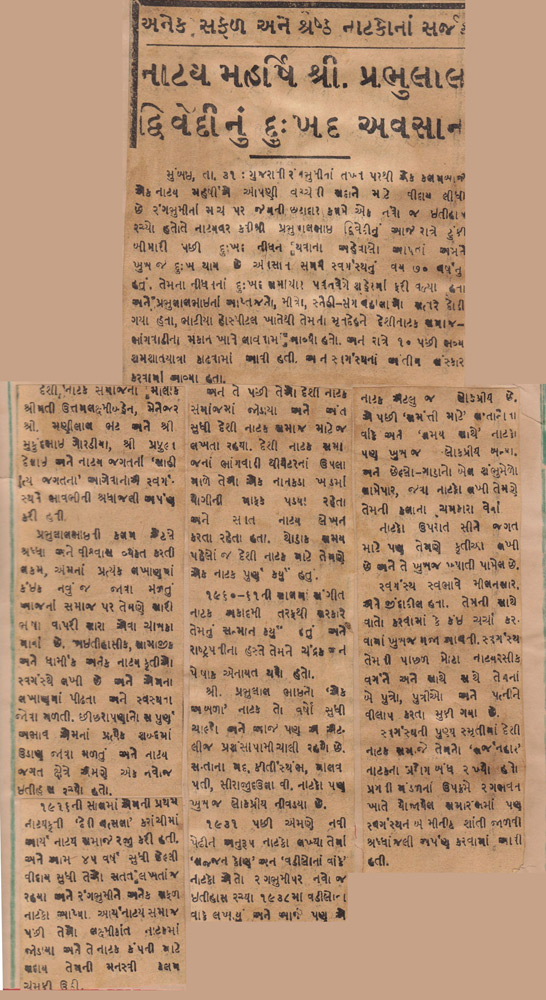 અનેક સફળ અને શ્રેષ્ઠ નાટકોનાં સર્જક
નાટય મહર્ષિ શ્રી. પ્રભુલાલ
દ્વિવેદીનું દુઃખદ અવસાન
મુંબઇ, તા. ૩૧ : ગુજરાતી રંગભૂમીનાં તખ્ત પરથી એક કલમબાજ
એક નાટય મહર્ષીએ આપણી વચ્ચેથી સદાને માટે વીદાય લીધી
છે રંગભુમીનાં મંચ પર જેમની છટાદાર કલમે એક નવો જ ઇતીહાસ
રચ્યો હતો તે નાટયકાર કવીશ્રી પ્રભુલાલભાઇ દ્વિવેદીનું આજ રાત્રે ટુંકી
બીમારી પછી દુઃખદ નીધન થયાના અહેવાલો આપતાં અમને
ખુબ જ દુઃખ થાય છે અવસાન સમયે સ્વર્ગસ્થનું વય ૭૦ વર્ષનું
હતું. તેમના નીધનનાં દુઃખદ સમાચાર પવનવેગે શહેરમાં ફરી વળ્યા હતા
અને પ્રભુલાલભાઇનાં આપ્તજનો, મીત્રો, સ્નેહી-સંબંધીઓ સત્વરે દોડી
ગયા હતા, ભાટીયા હોસ્પીટલ ખાતેથી તેમના મૃતદેહને દેશીનાટક સમાજ-
ભાંગવાડીના મકાન ખાતે લાવવામાં આવ્યો હતો. અને રાત્રે ૧૦ પછી ભવ્ય
સ્મશાનયાત્રા કાઢવામાં આવી હતી. અને સ્વર્ગસ્થના અંતીમ સંસ્કાર
કરવામાં આવ્યા હતા.
દેશી નાટક સમાજના માલીક
શ્રીમતી ઉત્તમલક્ષ્મીબ્હેન, મેનેજર
શ્રી. મણીલાલ ભટ અને શ્રી
મુકુંદભાઇ ગોરડીયા, શ્રી પ્રફુલ
દેસાઇ અને નાટય જગતનાં સાહી
ત્ય જગતનાં આગેવાનોએ સ્વર્ગ-
સ્થને ભાવભીની શ્રધાંજલી અર્પણ
કરી હતી.
પ્રભુલાલભાઇની કલમ એટલે
શ્રધ્ધા અને વીશ્વાસ વ્યક્ત કરતી
કલમ, એમનાં પ્રત્યેક લખાણમાં
કંઇક નવું જ જોવા મળતું
આજનાં સમાજ પર તેમણે સારી
ભાષા વાપરી સારા એવા ચાબકા
માર્યા છે. ઐતીહાસીક, સામાજીક
અને ધાર્મીક અનેક નાટય કૃતીઓ
સ્વર્ગસ્થે લખી છે અને એમના
લખાણમાં પીઢતા અને સ્વસ્થતા
જોવા મળતી. છીછરાપણાનો સંપુર્ણ
અભાવ એમનાં પ્રત્યેક શબ્દમાં
ઉંડાણ જોવા મળતું અને નાટય
જગત ક્ષેત્રે એમણે એક નવોજ
ઇતીહાસ રચ્યો હતો.
૧૯૧૬ની સાલમાં એમની પ્રથમ
નાટયકૃતી કરાંચીમાં
આર્ય નાટય સમાજે રજી કરી હતી.
અને આમ ૪૫ વર્ષ સુધી છેલ્લી
વીદાય સુધી તેઓ સતત્ લખતાંજ
રહયા અને રંગભુમીને અનેક સફળ
નાટકો આપ્યા. આર્યનાટય સમાજ
પછી તેઓ લક્ષ્મીકાંત નાટકમાં
જોડાયા અને તે નાટક કંપની માટે
સદાય તેમની મનસ્વી કલમ
ચમકી ઉઠી.
અને તે પછી તેઓ દેશી નાટક
સમાજમાં જોડાયા અને અંત
સુધી દેશી નાટક સમાજ માટેજ
લખતા રહયા. દેશી નાટક સમા
જનાં ભાંગવાડી થીયેટરનાં ઉપલા
માળે તેઓ એક નાનકડા ખંડમાં
યોગીની માફક પડયા રહેતા
અને સતત નાટય લેખન
કરતા રહેતા હતા. થોડાક સમય
પહેલાં જ દેશી નાટક માટે તેમણે
એક નાટક પુર્ણ કર્યું હતું.
૧૯૬૦-૬૧ની સાલમાં સંગીત
નાટક અકાદમી તરફથી સરકારે
તેમનું સન્માન કર્યું હતું અને
રાષ્ટ્રપતીના હસ્તે તેમને ચંદ્રક અને
પોષાક એનાયત થયો હતો.
શ્રી. પ્રભુલાલ ભાઇનો 'એક
અબળા' નાટક તો વર્ષો સુધી
ચાલ્યો અને આજે પણ એ એટ-
લીજ પ્રશંસાપામી ચાલી રહયો છે.
સત્તાના મદ, કીર્તીસ્થંભ, માલવ
પતી, સીરાજીદઉલા વી. નાટકો પણ
ખુબજ લોકપ્રીય નીવડયા છે.
૧૯૩૧ પછી એમણે નવી
પેઢીને અનુરૂપ નાટકો લખ્યા તેમાં
'સજ્જન કોણ' અને 'વડીલોનાં વાંકે'
નાટકો એતો રંગભુમીપર નવો જ
ઇતીહાસ રચ્યો ૧૯૩૮માં વડીલોના
વાંકે લખાયું અને આજે પણ એ
નાટક એટલુ જ લોકપ્રીય છે.
એ પછી 'સંપત્તી માટે' સંતાનોના
વાંકે અને 'સમય સાથે' નાટકો
પણ ખુબજ લોકપ્રીય બન્યા.
અને છેલ્લે-ગાડાનો બેલ શંભુમેળો
સામેપાર, જેવા નાટકો લખી તેમણે
તેમની કલમના ચમકારા વેર્યાં
નાટકો ઉપરાંત સીને જગત
માટે પણ તેમણે કૃતીઓ લખી
છે અને તે ખુબજ ખ્યાતી પામેલ છે.
સ્વર્ગસ્થ સ્વભાવે મીલનસાર,
અને જીંદાદીલ હતા. તેમની સાથે
વાતો કરવામાં કે કંઇ ચર્ચા કર-
વામાં ખુબજ મજા આવતી. સ્વર્ગસ્થ
તેમની પાછળ મોટા નાટયરસીક
વર્ગને અને સાથે સાથે તેમનાં
બે પુત્રો, પુત્રીઓ અને પત્નીને
વીલાપ કરતા મુકી ગયા છે.
સ્વર્ગસ્થની પુણ્ય સ્મૃતીમાં દેશી
નાટક સમાજે તેમનો 'સર્જનહાર'
નાટકના પ્રયોગ બંધ રખ્યો હતો
પ્રગતી મંડળનાં ઉપક્રમે રંગભવન
ખાતે યોજાયેલ સમારંભમાં પણ
સ્વર્ગસ્થને બે મીનીટ શાંતી જાળવી
શ્રધાંજલી અર્પણ કરવામાં આવી
હતી.